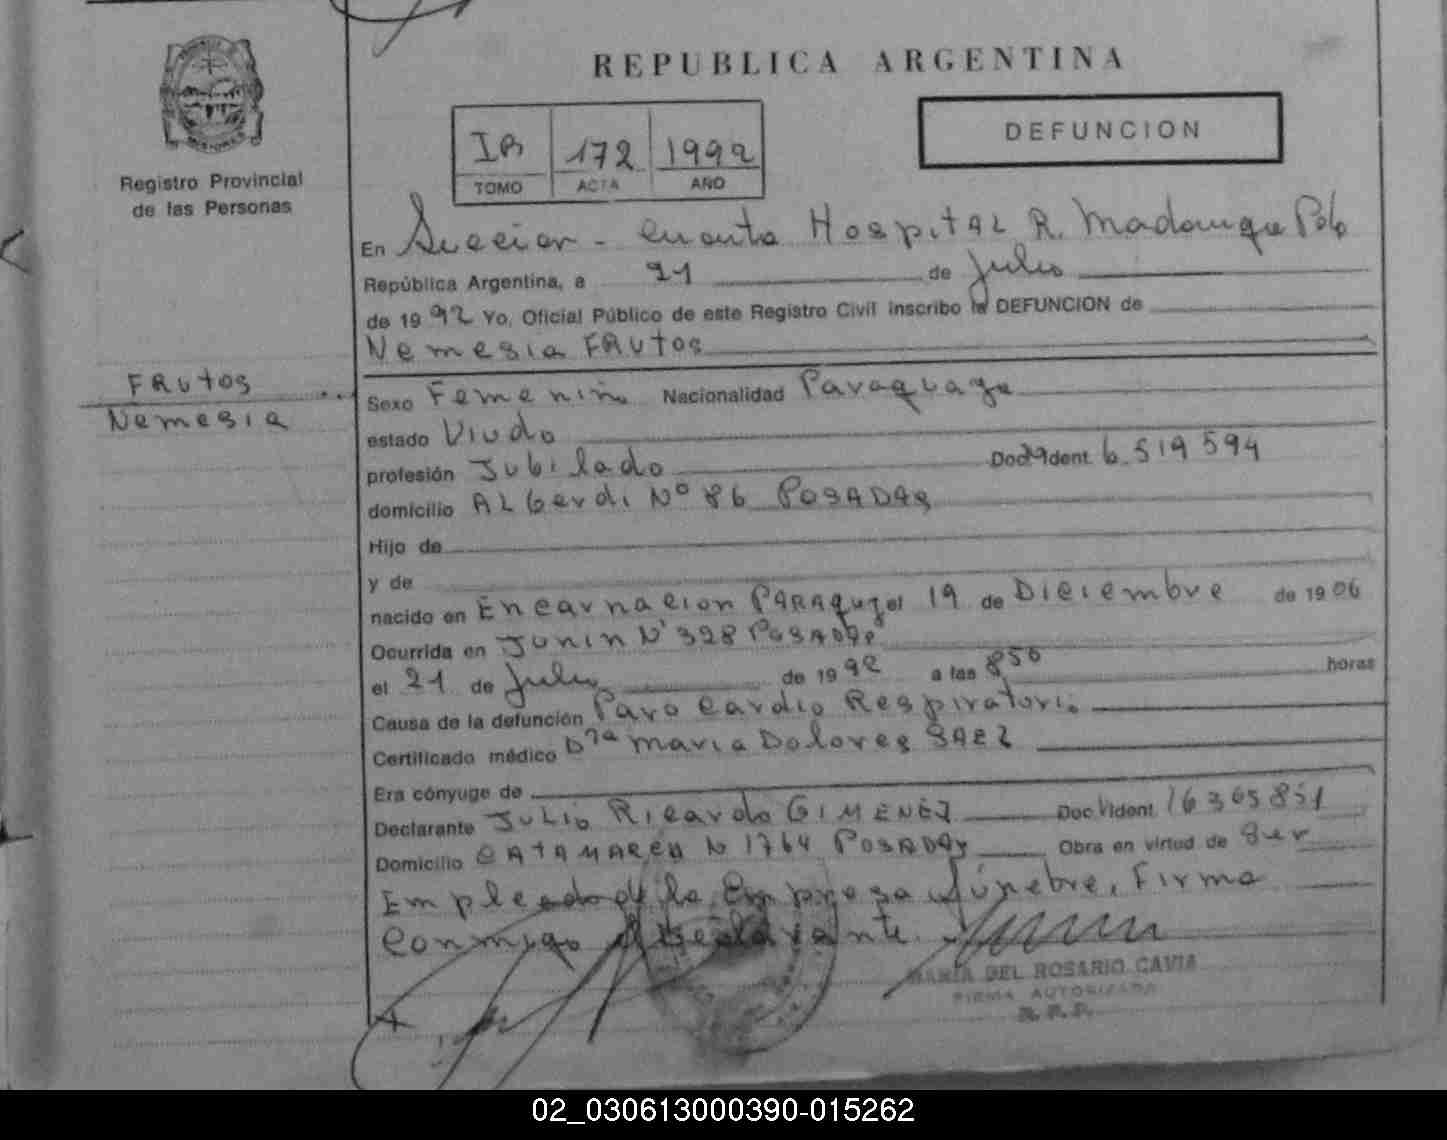 REPUBLICA ARGENTINA
Registro Provincial
de las Personas
IB 172 1992
TOMO ACTA AÑO
DEFUNCION
En Seccion - Cuarta Hospital R. Madariaga Pdo
República Argentina, a 21 de Julio
de 1992 Yo, Oficial Público de este Registro Civil inscribo la DEFUNCION de
Nemesia FRUTOS
FRUTOS
Nemesia
Sexo Femenino Nacionalidad Paraguaya
estado Viudo
profesión Jubilado Doc. Ident. 6.519594
domicilio ALBerdi Nº 86 POSADAS
Hijo de
y de
nacido en Encarnacion PARAguay el 19 de Diciembre de 1906
Ocurrida en JUNIN Nº 328 POSADAS
el 21 de Julio de 1992 a las 850 horas
Causa de la defunción Paro Cardio Respiratorio
Certificado médico Dra Maria Dolores SAEZ
Era cónyuge de
Declarante JULIO Ricardo GIMENEZ Doc. Ident. 16365851
Domicilio CATAMARCA N 1764 POSADAS Obra en virtud de Ser
Empleado de la Empresa fúnebre, Firma
Conmigo el declarante.
MARIA DEL ROSARIO CAVIA
FIRMA AUTORIZADA
R. P. P.
02_030613000390-015262